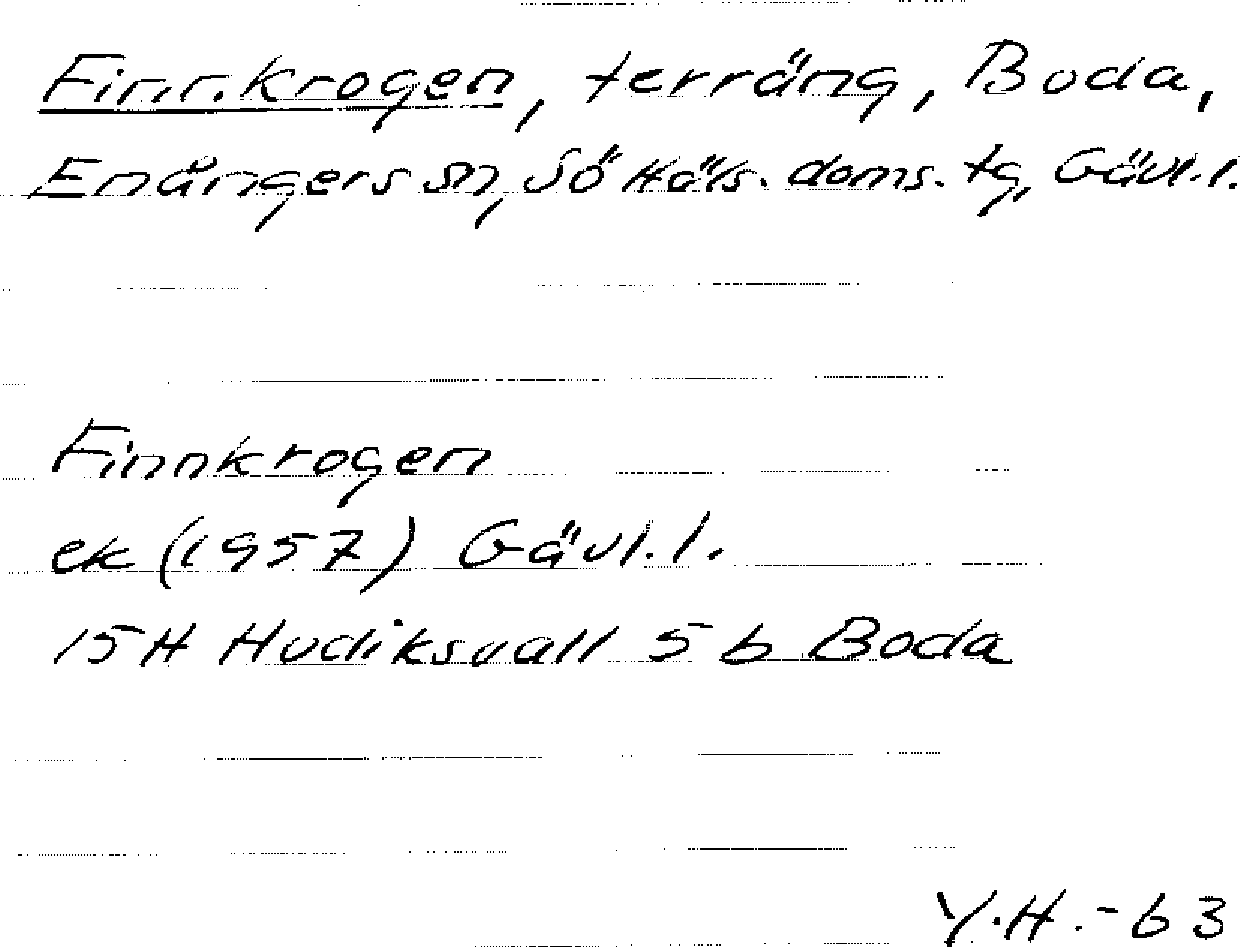 Finnkrogen, terräng, Boda,
Enångers sn, Sö Häls. doms. tg, Gävl.l.
Finnkrogen
ek (1957) Gävl.l.
15H Hudiksvall 5 b Boda
Y.H.-63